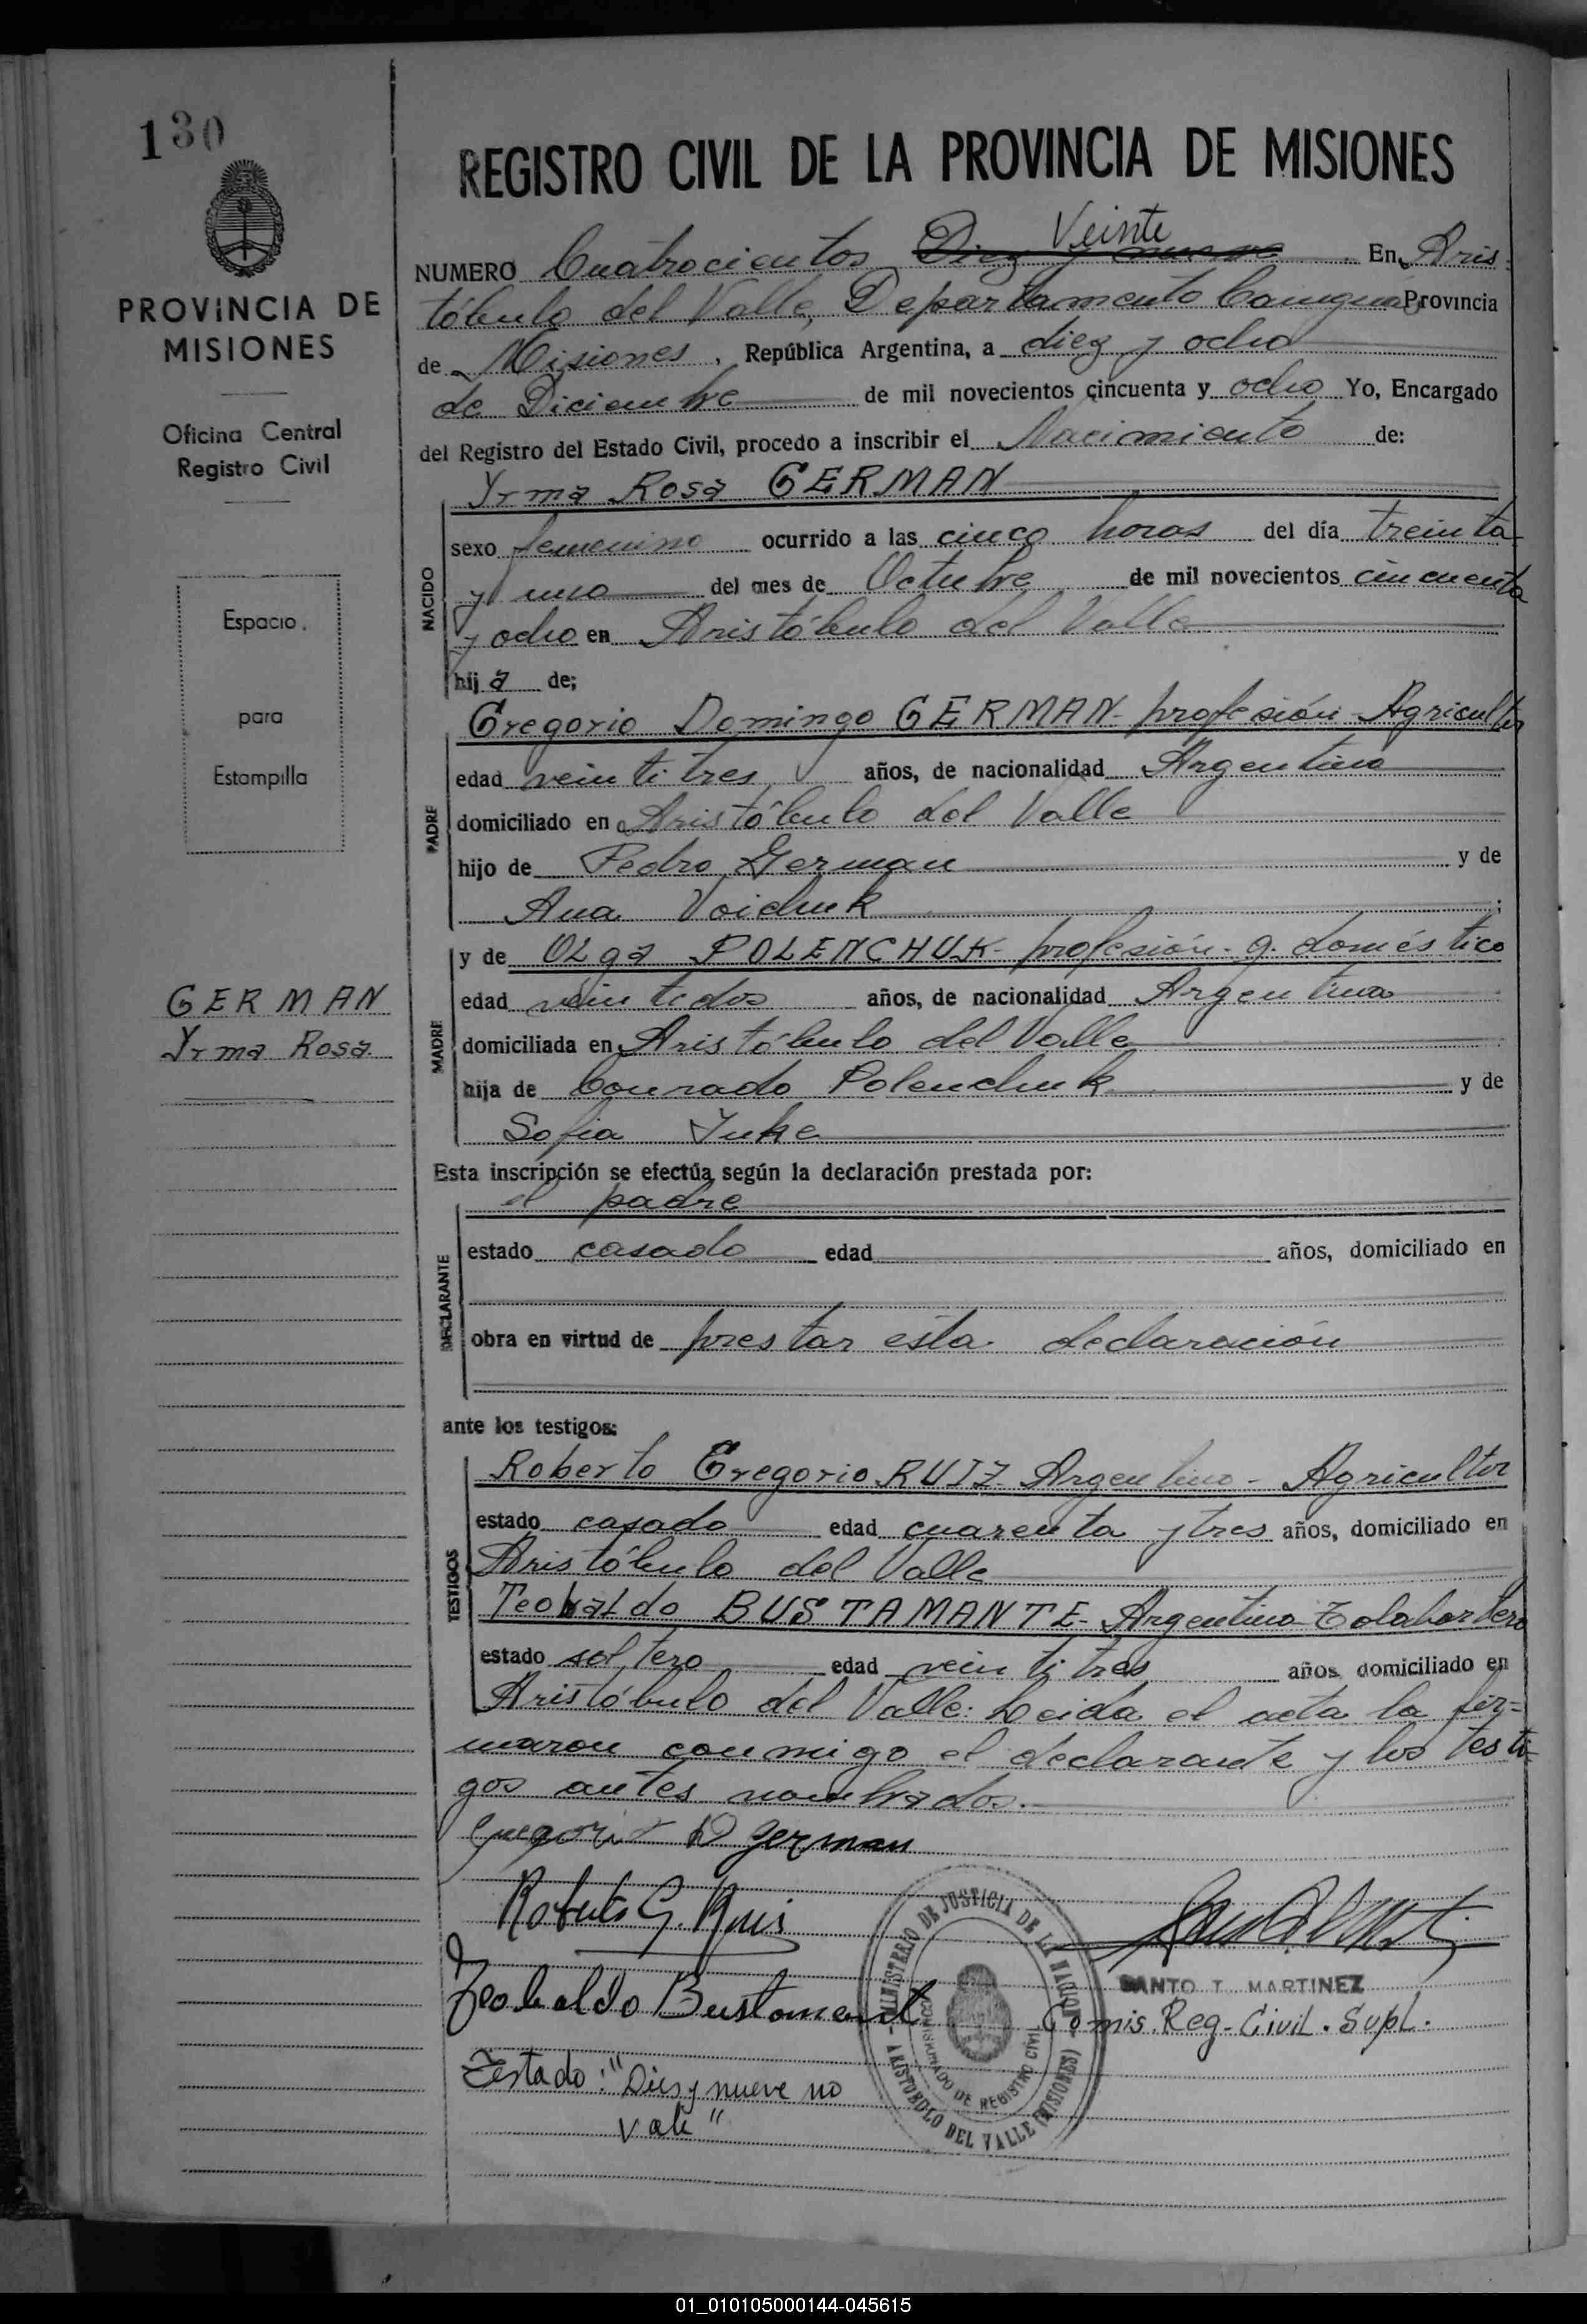 130
REGISTRO CIVIL DE LA PROVINCIA DE MISIONES
PROVINCIA DE
MISIONES
Oficina Central
Registro Civil
Espacio
para
Estampilla
GERMAN
Yrma Rosa
Veinte
NUMERO Cuatrocientos Diez y nueve En Aris-
tóbulo del Valle, Departamento Cainguas Provincia
de Misiones, República Argentina, a diez y ocho
de Diciembre de mil novecientos cincuenta y ocho Yo, Encargado
del Registro del Estado Civil, procedo a inscribir el Nacimiento de:
Yrma Rosa GERMAN
NACIDO
sexo femenino ocurrido a las cinco horas del día treinta
y uno del mes de Octubre de mil novecientos cincuenta
y ocho en Aristóbulo del Valle
hija de;
Gregorio Domingo GERMAN- profesión- Agricultor
PADRE
edad veintitres años, de nacionalidad Argentina
domiciliado en Aristóbulo del Valle
hijo de Pedro German y de
Ana Voichuk;
y de OLga POLENCHUK- profesión- q. doméstico
MADRE
edad veintidos años, de nacionalidad Argentina
domiciliada en Aristóbulo del Valle
hija de Conrado Polenchuk y de
Sofia
Esta inscripción se efectúa según la declaración prestada por:
el padre
DECLARANTE
estado casado edad años, domiciliado en
obra en virtud de prestar esta declaración
ante los testigos:
Roberto Gregorio RUIZ Argentino - Agricultor
TESTIGOS
estado casado edad cuarenta y tres años, domiciliado en
Aristóbulo del Valle
Teobaldo BUSTAMANTE- Argentino
estado soltero edad veintitres años, domiciliado en
Aristóbulo del Valle: Leida el acta la fir-
maron conmigo el declarante y los testi-
gos antes nombrados.
Gregorio D German
Roberto G. Ruis
Teobaldo Bustamant
MINISTERIO DE JUSTICIA DE LA NACION
COMISIONADO DE REGISTRO CIVIL
ARISTOBULO DEL VALLE (MISIONES)
SANTO T. MARTINEZ
Comis. Reg. Civil. Supl.
Testado: "Dies y nueve no
vale"
01_010105000144-045615